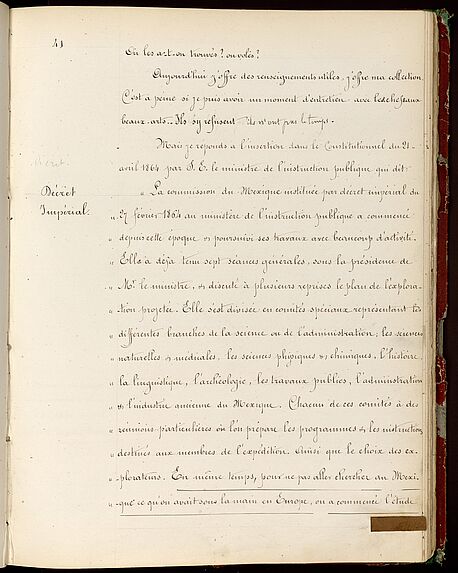 41
Où les a-t-on trouvés? ou volés?
Aujourd'hui j'offre des renseignements utiles, j'offre ma collection.
C'est à peine si je puis avoir un moment d'entretien avec les chefs aux
beaux-arts.. Ils s'y refusent ils n'ont pas le temps.
Mais je réponds à l'insertion dans le Constitutionnel du 21
avril 1864 par S. E. le ministre de l'instruction publique qui dit:
Décret
Impérial.
" La commission du Mexique instituée par decret impérial du
" 27 février 1864 au ministère de l'instruction publique a commencé
" depuis cette époque & poursuivi ses travaux avec beaucoup d'activité.
" Elle à déja tenu sept séances générales, sous la présidence de
" Mr. le ministre, & discuté à plusieurs reprises le plan de l'explora-
" tion projetée. Elle s'est divisée en comités spéciaux representant les
" différentes branches de la science ou de l'administration; les sciences
" naturelles & médicales, les sciences physiques & chimiques, l'histoire,
" la linguistique, l'archéologie, les travaux publics, l'administration
" & l'industrie ancienne du Mexique. Chacun de ces comités à des
" réunions particulières où l'on prépare les programmes & les instructions
" destinés aux membres de l'expédition. ainsi que le choix des ex-
" plorateurs. En même temps, pour ne pas aller chercher au Mexi-
" que ce qu'on avait sous la main en Europe, on a commencé l'étude